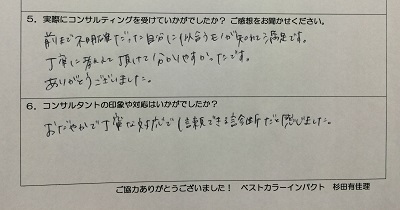 5. 実際にコンサルティングを受けていかがでしたか？ ご感想をお聞かせください。
前まで不明確だった自分に似合う色が知れて満足です。
丁寧に教えて頂けて分かりやすかったです。
ありがとうございました。
6. コンサルタントの印象や対応はいかがでしたか？
おだやかで丁寧な対応で信頼できる診断だと感じました。
ご協力ありがとうございました！ ベストカラーインパクト 杉田有佳理